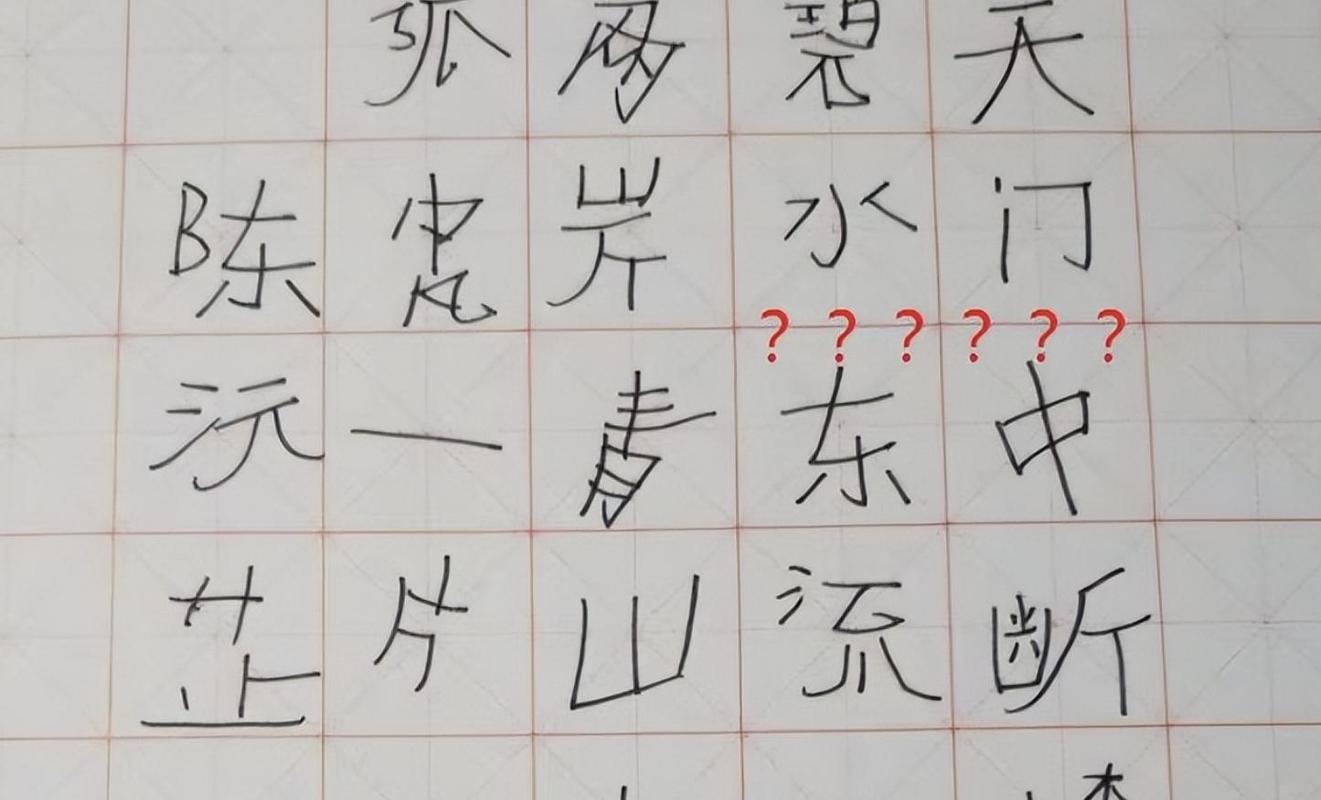 天门中断
碧水东流
两岸青山
孤帆一片
陈沅芷
??????